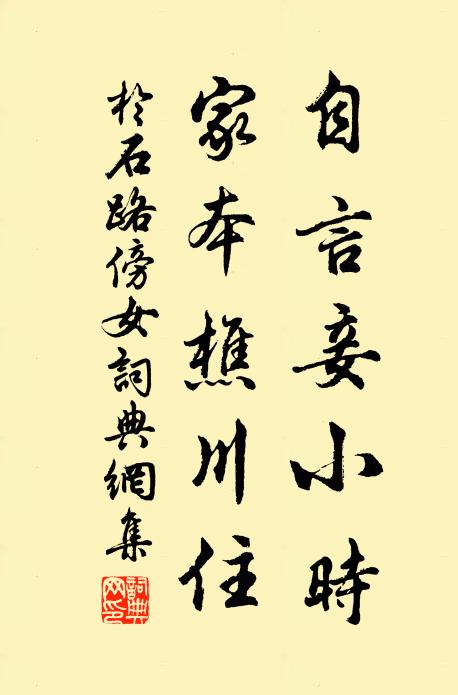 自言妾小時
家本樵川住
於石路傍女詞典網集
詞典網印